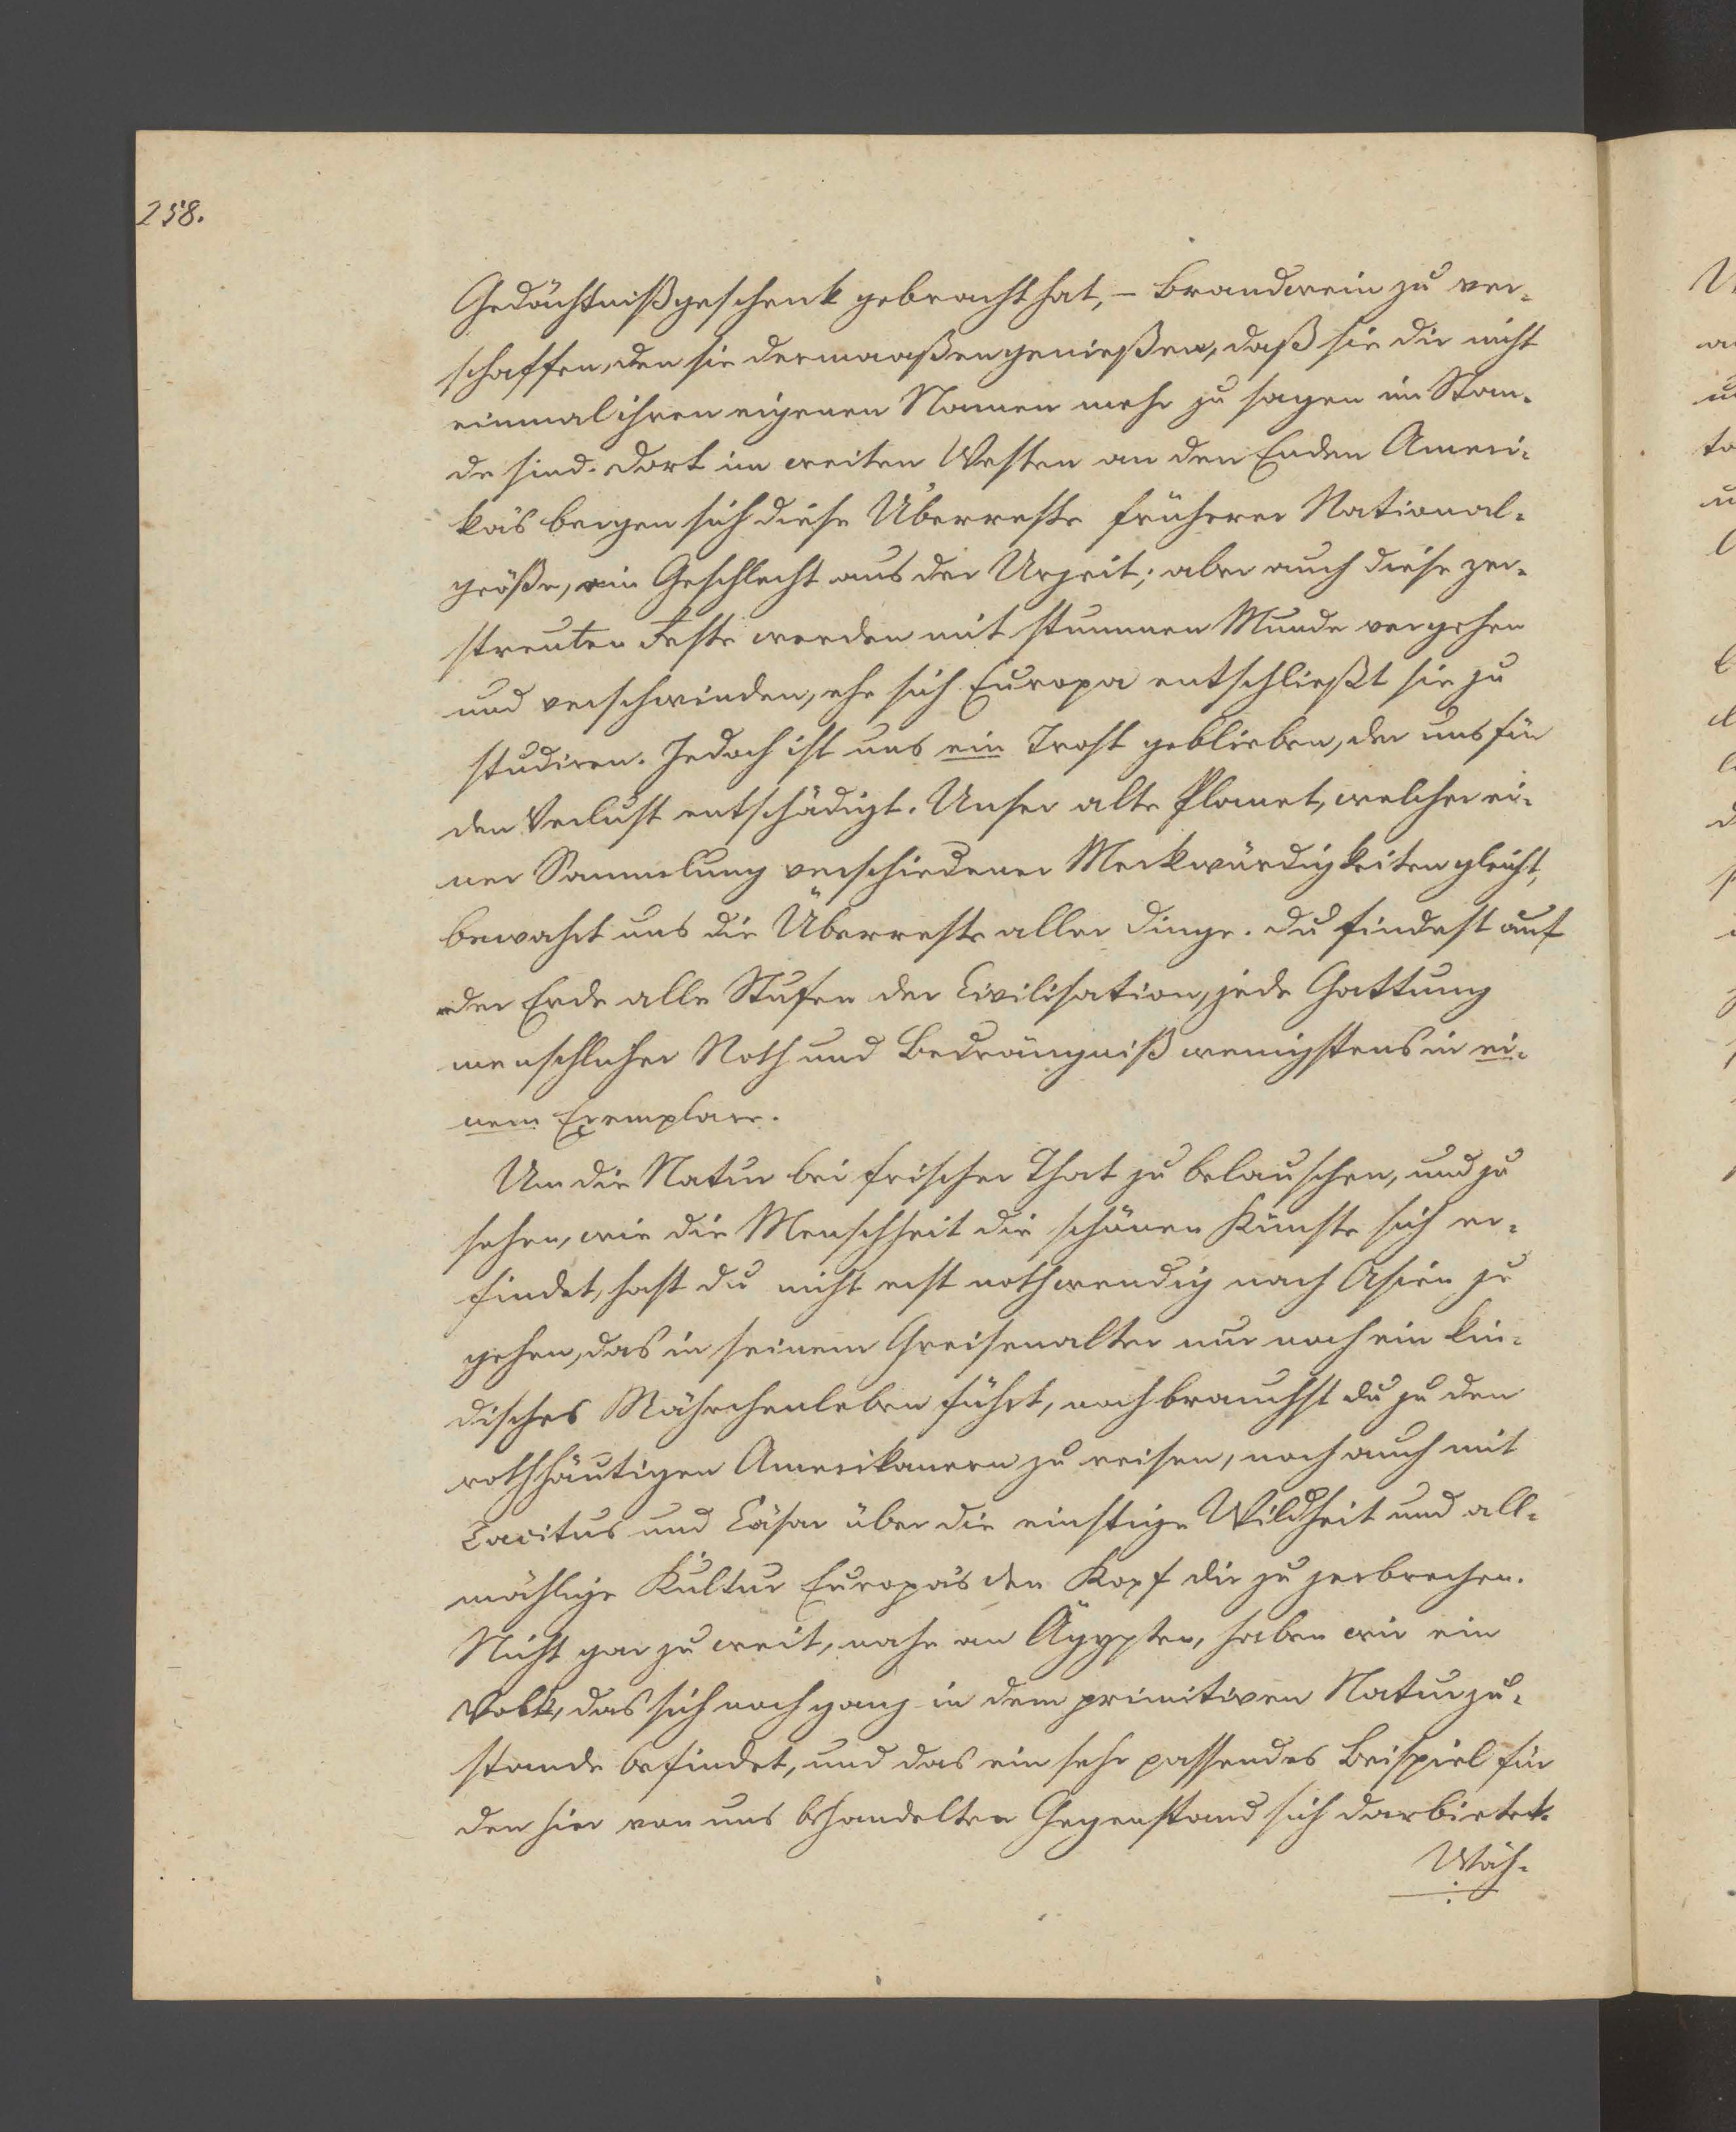 258.
Gedächtnißgeschenk gebracht hat, – Brandwein zu ver-
schaffen, den sie dermaaßen genießen, daß sie dir nicht
einmal ihren eigenen Namen mehr zu sagen im Stan-
de sind. Dort im weiten Westen an den Enden Ameri-
ka's bergen sich diese Überreste früherer National-
größe, ein Geschlecht aus der Urzeit; aber auch diese zer-
streuten Reste werden mit stummen Munde vergehen
und verschwinden, ehe sich Europa entschließt sie zu
studiren. Jedoch ist uns ein Trost geblieben, der uns für
den Verlust entschädigt. Unser alte Planet, welcher ei-
ner Sammlung verschiedener Merkwürdigkeiten gleicht,
bewahrt uns die Überreste aller Dinge. Du findest auf
der Erde alle Stufen der Civilisation, jede Gattung
menschlicher Noth und Bedrängniß wenigstens in ei-
nem Exemplare.
Um die Natur bei frischer That zu belauschen, und zu
sehen, wie die Menschheit die schönen Künste sich er-
findet, hast du nicht erst nothwendig nach Asien zu
gehen, das in seinem Greisenalter nur noch ein kin-
disches Mährchenleben führt, noch brauchst du zu den
rothhäutigen Amerikanern zu reisen, noch auch mit
Tacitus und Cäsar über die einstige Wildheit und all-
mählige Kultur Europa's den Kopf dir zu zerbrechen.
Nicht gar zu weit, nahe an Ägypten, haben wir ein
Volk, das sich noch ganz in dem primitiven Naturzu-
stande befindet, und das ein sehr passendes Beispiel für
den hier von uns behandelten Gegenstand sich darbietet.
Wäh-